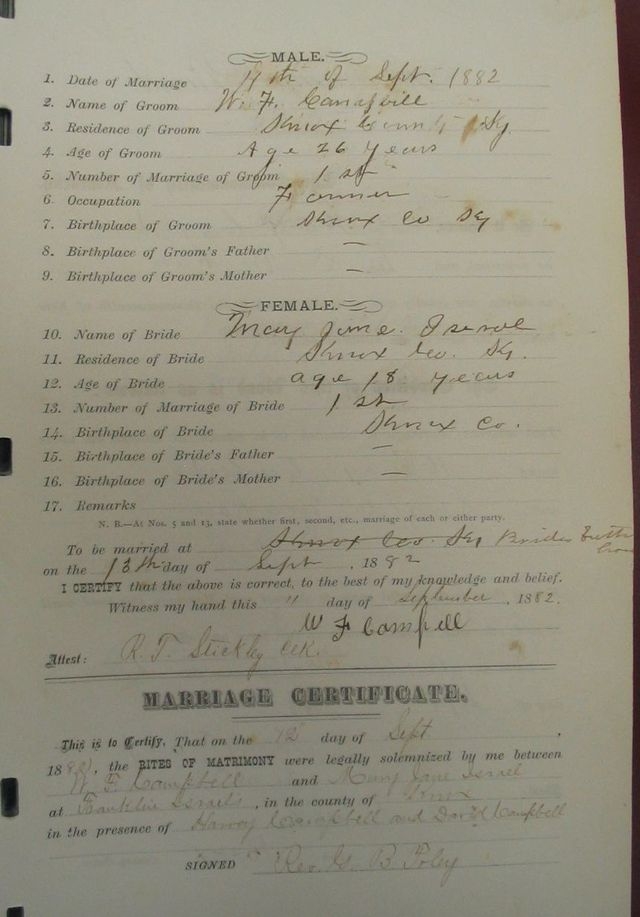 MALE.
1. Date of Marriage 17th of Sept. 1882
2. Name of Groom W. F. Campbill
3. Residence of Groom Knox County Ky.
4. Age of Groom Age 26 years
5. Number of Marriage of Groom 1 st
6. Occupation Farmer
7. Birthplace of Groom Knox Co Ky
8. Birthplace of Groom's Father —
9. Birthplace of Groom's Mother —
FEMALE.
10. Name of Bride Mary Jane.
11. Residence of Bride Knox Co. Ky.
12. Age of Bride age 18 years
13. Number of Marriage of Bride 1 st
14. Birthplace of Bride Knox Co.
15. Birthplace of Bride's Father —
16. Birthplace of Bride's Mother —
17. Remarks
N. B.—At Nos. 5 and 13, state whether first, second, etc., marriage of each or either party.
To be married at Knox Co. Ky Brides
on the 13th day of Sept, 1882
I CERTIFY that the above is correct, to the best of my knowledge and belief.
Witness my hand this " day of September, 1882.
W F Campbell
Attest: R. T. Stickley Clk.
MARRIAGE CERTIFICATE.
This is to Certify, That on the 12 day of Sept,
1882, the RITES OF MATRIMONY were legally solemnized by me between
W F Campbell and Mary Jane Israel
at Franklin Israels, in the county of Knox
in the presence of Harvey Campbell and David Campbell
SIGNED Rev. G. B. Foley